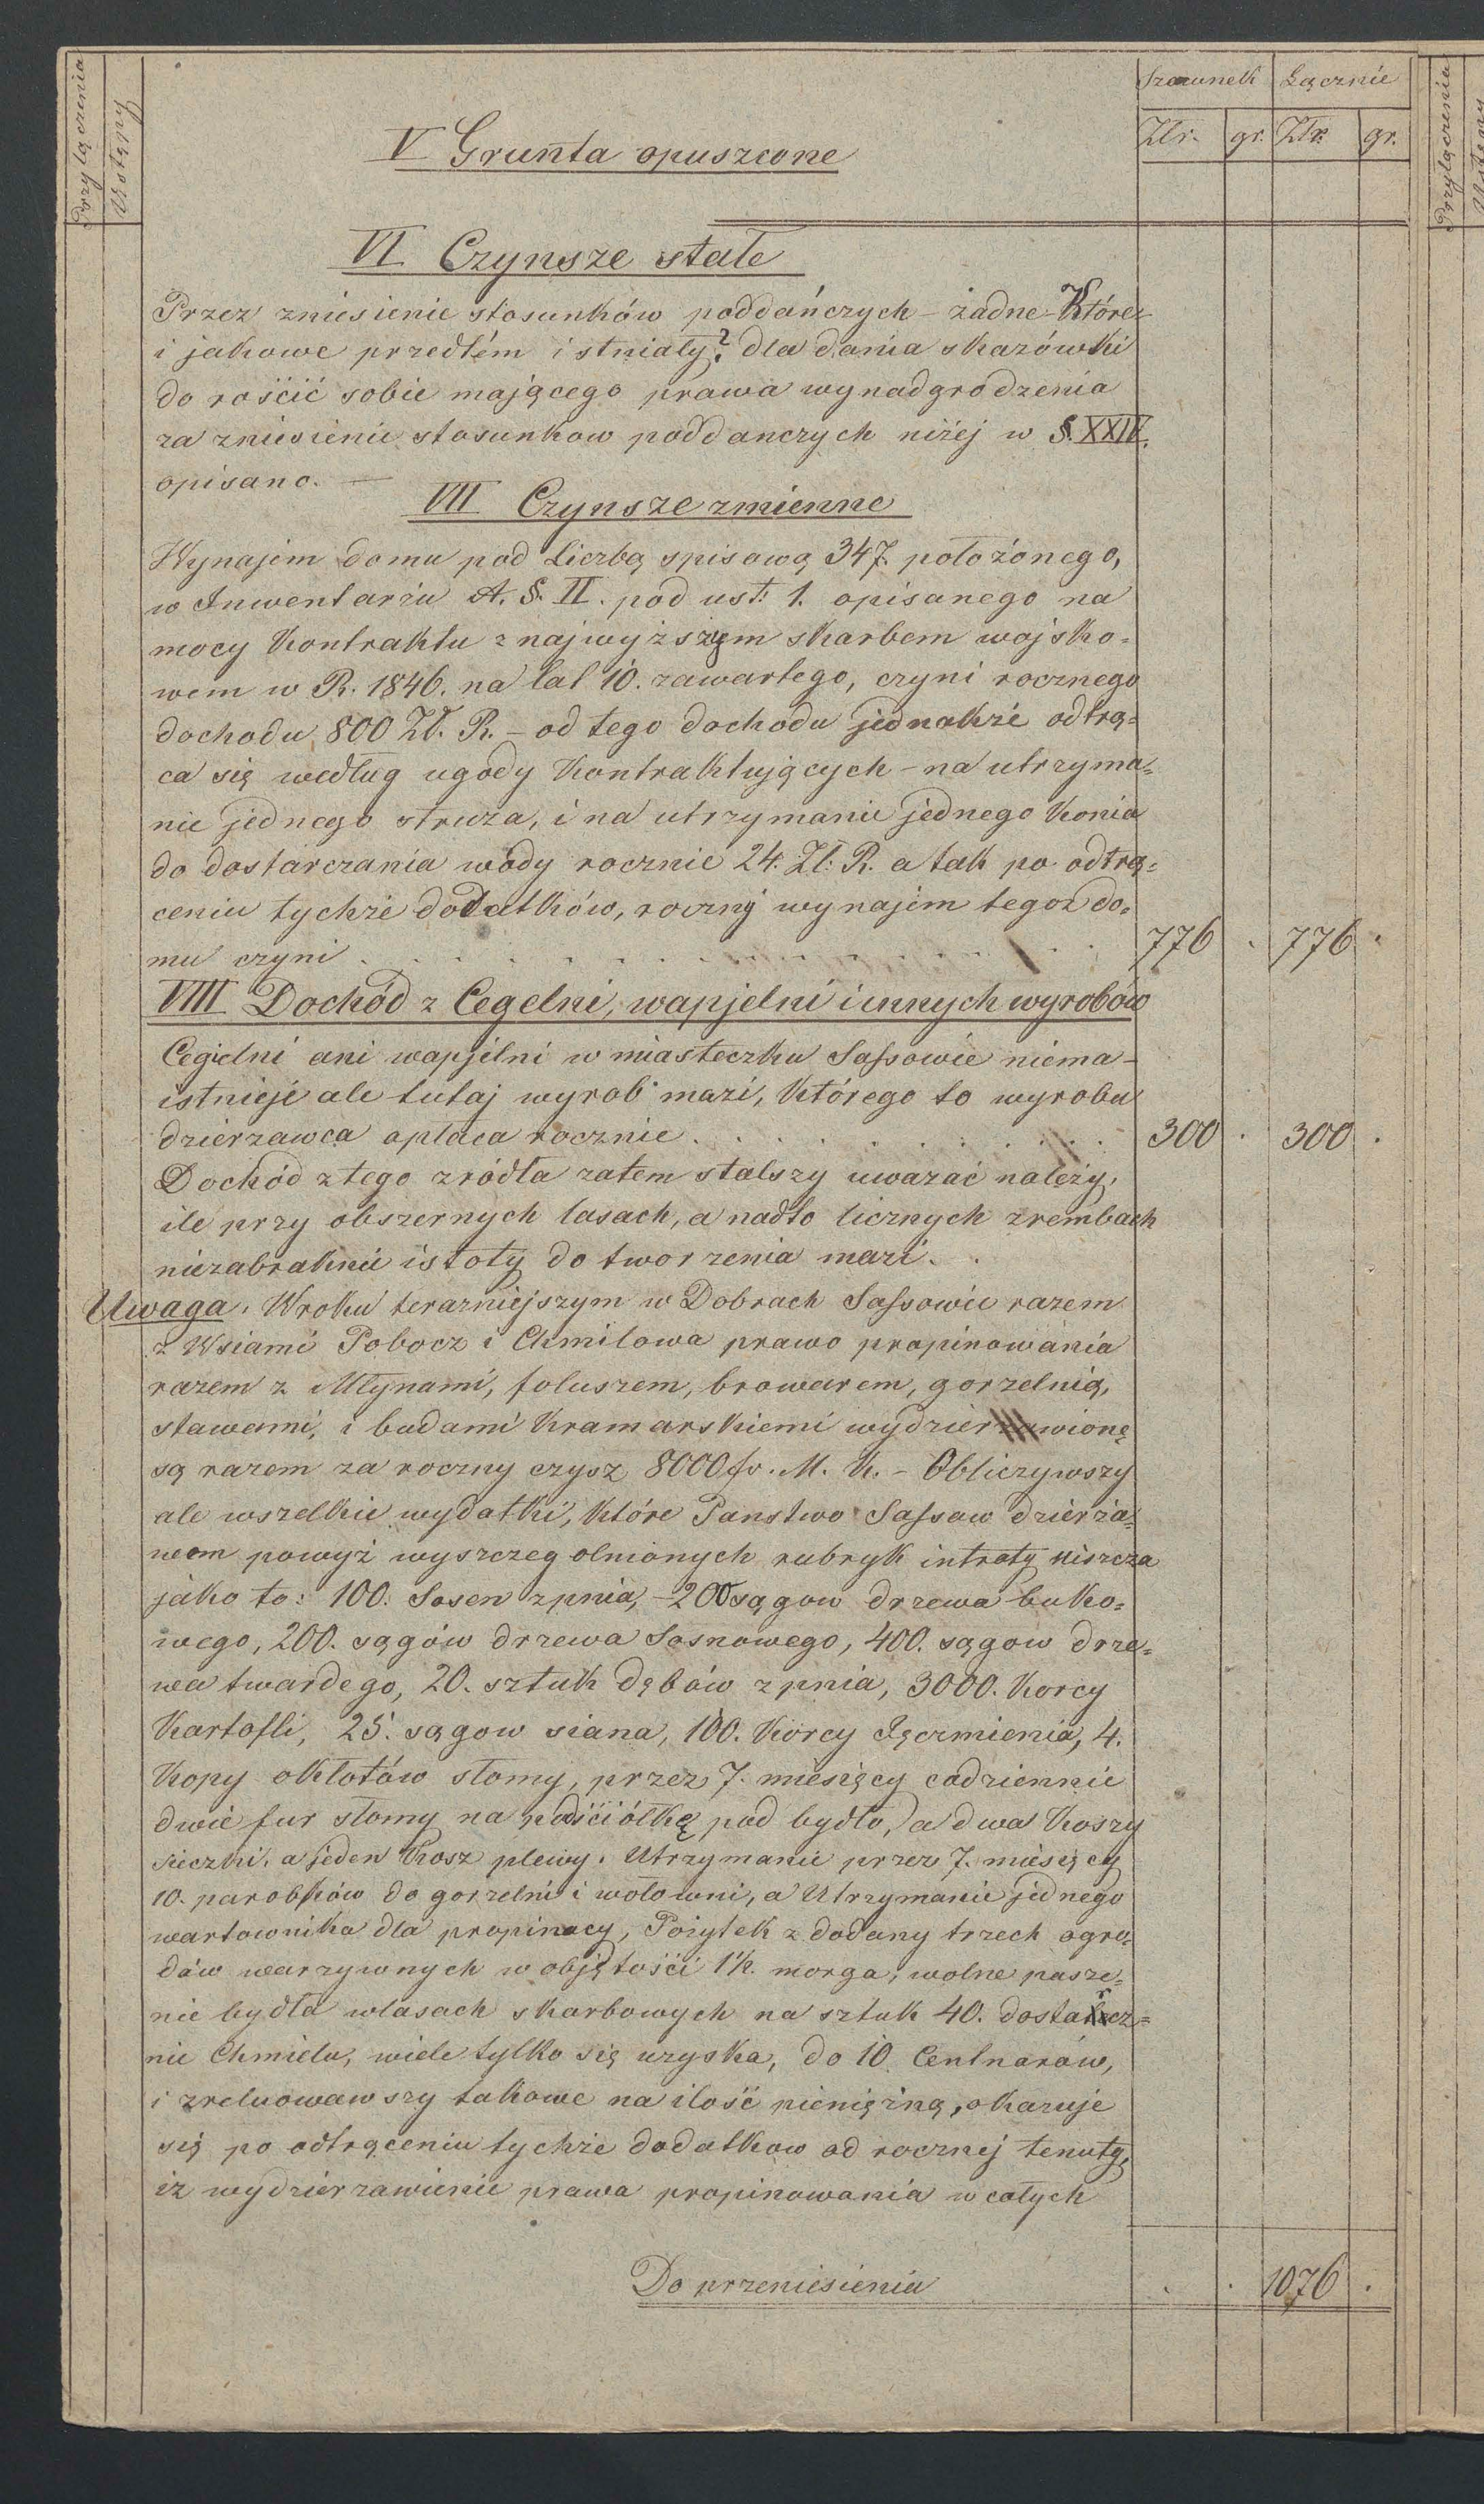 Przyłączenia
Ustępy
Szacunek Łącznie
Złr. gr. Złr. gr.
V Grunta opuszczone
VI Czynsze stałe
Przez zniesienie stosunków poddańczych – żadne – Które
i jakowe przedtém istniały? dla dania skazówki
do rościć sobie mającego prawa wynadgrodzenia
za zniesienie stosunkow poddanczych niżej w §. XXIV.
opisano. —
VII Czynsze zmienne
Wynajem domu pod Liczbą spisową 347. położonego,
w Inwentarzu A. §. II. pod ust: 1. opisanego na
mocy Kontraktu z najwyższym skarbem wojsko=
wem w R. 1846. na lat 10. zawartego, czyni rocznego
dochodu 800 Zł. R. – od tego dochodu jednakże odtrą=
ca się według ugody Kontraktujących – na utrzyma=
nie jednego struża, i na utrzymanie jednego Konia
do dostarczania wody rocznie 24. Zł: R. a tak po odtrą=
ceniu tychże dodatków, roczný wynajem tegoż do=
mu czyni . . . . . . . . . . 776 . 776 .
VIII Dochód z Cegelni, wapjelni i innych wyrobów
Cegielni ani wapjelni w miasteczku Saſsowie niema –
istnieje ale tutaj wyrob mazi, Którego to wyrobu
dzierzawca opłaca rocznie . . . . . . . . 300 . 300 .
Dochód z tego zródła zatem stalszy uwazać należy,
ile przy obszernych lasach, a nadto licznych zrembach
niezabraknie istoty do tworzenia mazi. .
Uwaga. W roku terazniejszym w Dobrach Saſsowie razem
z Wsiami Pobocz i Chmilowa prawo propinowania
razem z Młynami, foluszem, browarem, gorzelnią,
stawami, i budami Kramarskiemi wydzierzawionę
są razem za roczny czysz 8000 fr. M. K. – Obliczywszy
ale wszelkie wydatki, Które Panstwo Saſsow dzierża=
wom powyż wyszczegolnionych rubryk intraty niszcza
jako to: 100. Sosen z pnia, – 200 sągow drzewa buko=
wego, 200. sągów drzewa Sosnowego, 400. sągow drze=
wa twardego, 20. sztuk dębów z pnia, 3000. Korcy
Kartofli, 25. sągow siana, 100. Korcy Jęczmienia, 4.
Kopy okłotów słomy, przez 7. miesięcy codziennie
dwie fur słomy na podściółkę pod bydło, a dwa Koszy
sieczki, a jeden Kosz plewy. Utrzymanie przez 7. miesięcy
10. parobków do gorzelni i wołowni, a Utrzymanie jednego
wartownika dla propinacy, Pożytek z dodany trzech ogro=
dów warzywnych w objętości 1½. morga, wolne pasze=
nie bydła w lasach skarbowych na sztuk 40. dostarcz=
nie Chmielu, wiele tylko się uzyska, do 10 Centnarów,
i zreluowawszy takowe na ilość pieniężną, okazuje
się po odtrąceniu tychże dodatkow od rocznej tenuty,
iz wydzierzawienie prawa propinowania w całych
Do przeniesienia . . 1076 .
Przyłączenia